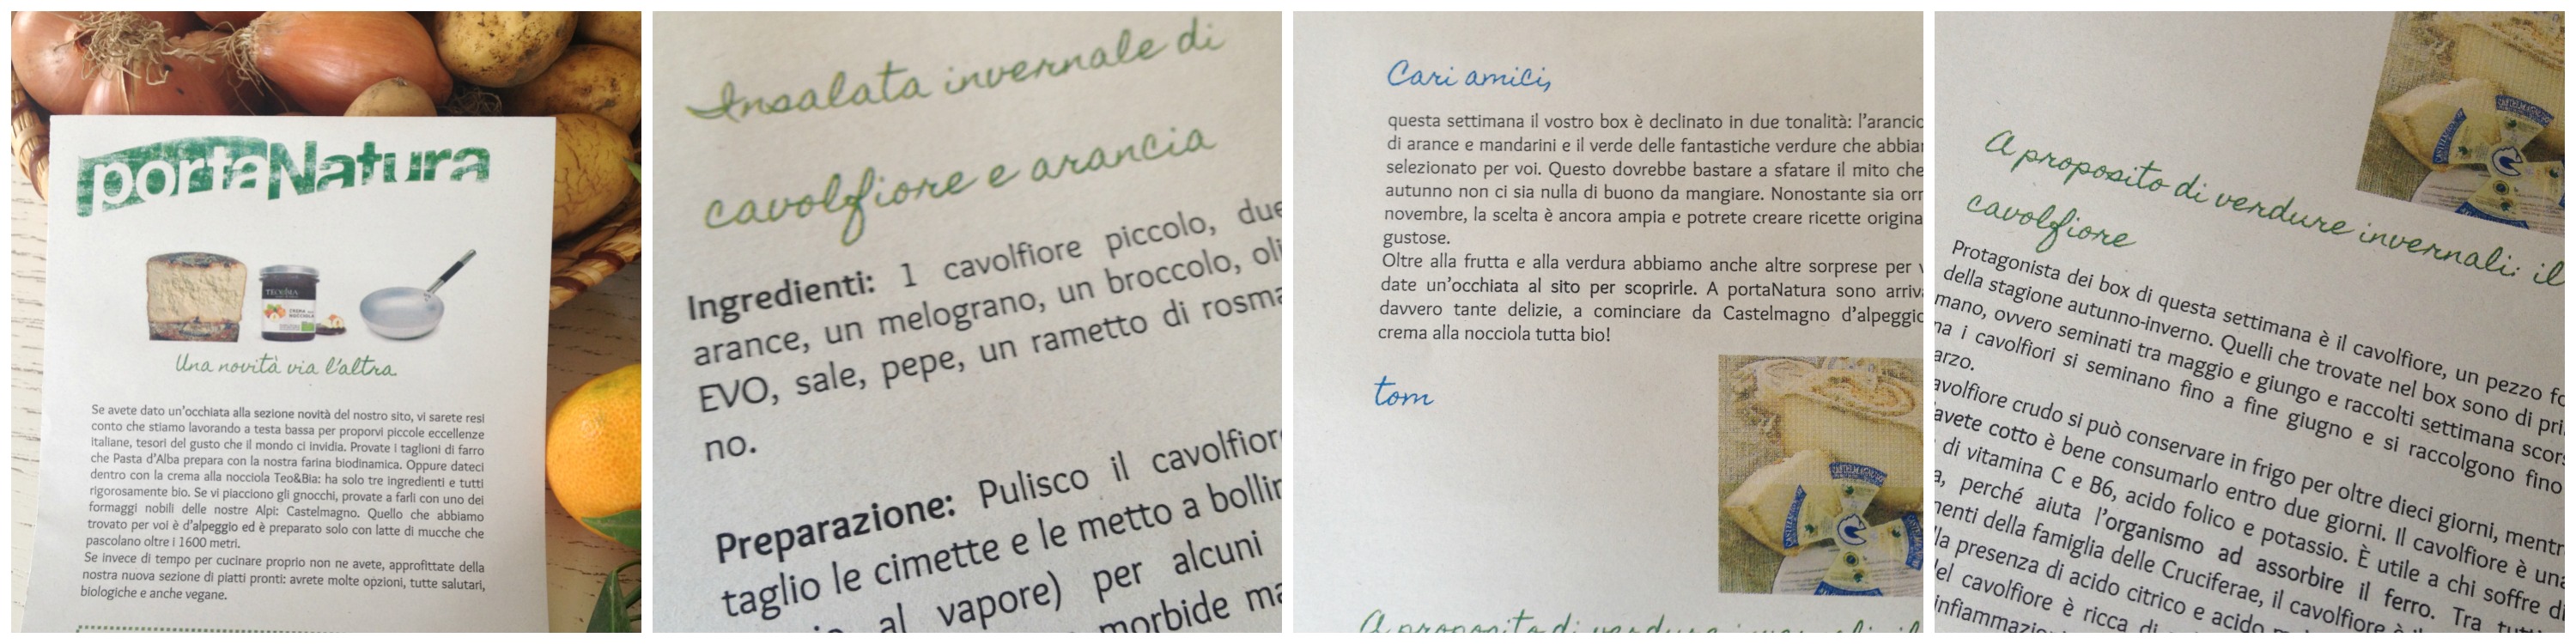 portaNatura
TEO&BIA
CREMA
NOCCIOLA
Una novità via l'altra.
Se avete dato un'occhiata alla sezione novità del nostro sito, vi sarete resi
conto che stiamo lavorando a testa bassa per proporvi piccole eccellenze
italiane, tesori del gusto che il mondo ci invidia. Provate i taglioni di farro
che Pasta d'Alba prepara con la nostra farina biodinamica. Oppure dateci
dentro con la crema alla nocciola Teo&Bia: ha solo tre ingredienti e tutti
rigorosamente bio. Se vi piacciono gli gnocchi, provate a farli con uno dei
formaggi nobili delle nostre Alpi: Castelmagno. Quello che abbiamo
trovato per voi è d'alpeggio ed è preparato solo con latte di mucche che
pascolano oltre i 1600 metri.
Se invece di tempo per cucinare proprio non ne avete, approfittate della
nostra nuova sezione di piatti pronti: avrete molte opzioni, tutte salutari,
biologiche e anche vegane.
Insalata invernale di
cavolfiore e arancia
Ingredienti: 1 cavolfiore piccolo, due
arance, un melograno, un broccolo, oli
EVO, sale, pepe, un rametto di rosma
no.
Preparazione: Pulisco il cavolfior
taglio le cimette e le metto a bollir
al vapore) per alcuni
morbide ma
Cari amici,
questa settimana il vostro box è declinato in due tonalità: l'arancio
di arance e mandarini e il verde delle fantastiche verdure che abbia
selezionato per voi. Questo dovrebbe bastare a sfatare il mito che
autunno non ci sia nulla di buono da mangiare. Nonostante sia orm
novembre, la scelta è ancora ampia e potrete creare ricette origina
gustose.
Oltre alla frutta e alla verdura abbiamo anche altre sorprese per v
date un'occhiata al sito per scoprirle. A portaNatura sono arriva
davvero tante delizie, a cominciare da Castelmagno d'alpeggio
crema alla nocciola tutta bio!
tom
CASTELMAGNO
A proposito di verdure invernali: il
cavolfiore
Protagonista dei box di questa settimana è il cavolfiore, un pezzo fo
della stagione autunno-inverno. Quelli che trovate nel box sono di pri
mano, ovvero seminati tra maggio e giungo e raccolti settimana scors
na i cavolfiori si seminano fino a fine giugno e si raccolgono fino
arzo.
avolfiore crudo si può conservare in frigo per oltre dieci giorni, mentr
avete cotto è bene consumarlo entro due giorni. Il cavolfiore è una
di vitamina C e B6, acido folico e potassio. È utile a chi soffre di
a, perché aiuta l'organismo ad assorbire il ferro. Tra tutti
menti della famiglia delle Cruciferae, il cavolfiore è
la presenza di acido citrico e acido
el cavolfiore è ricca di
infiammazio